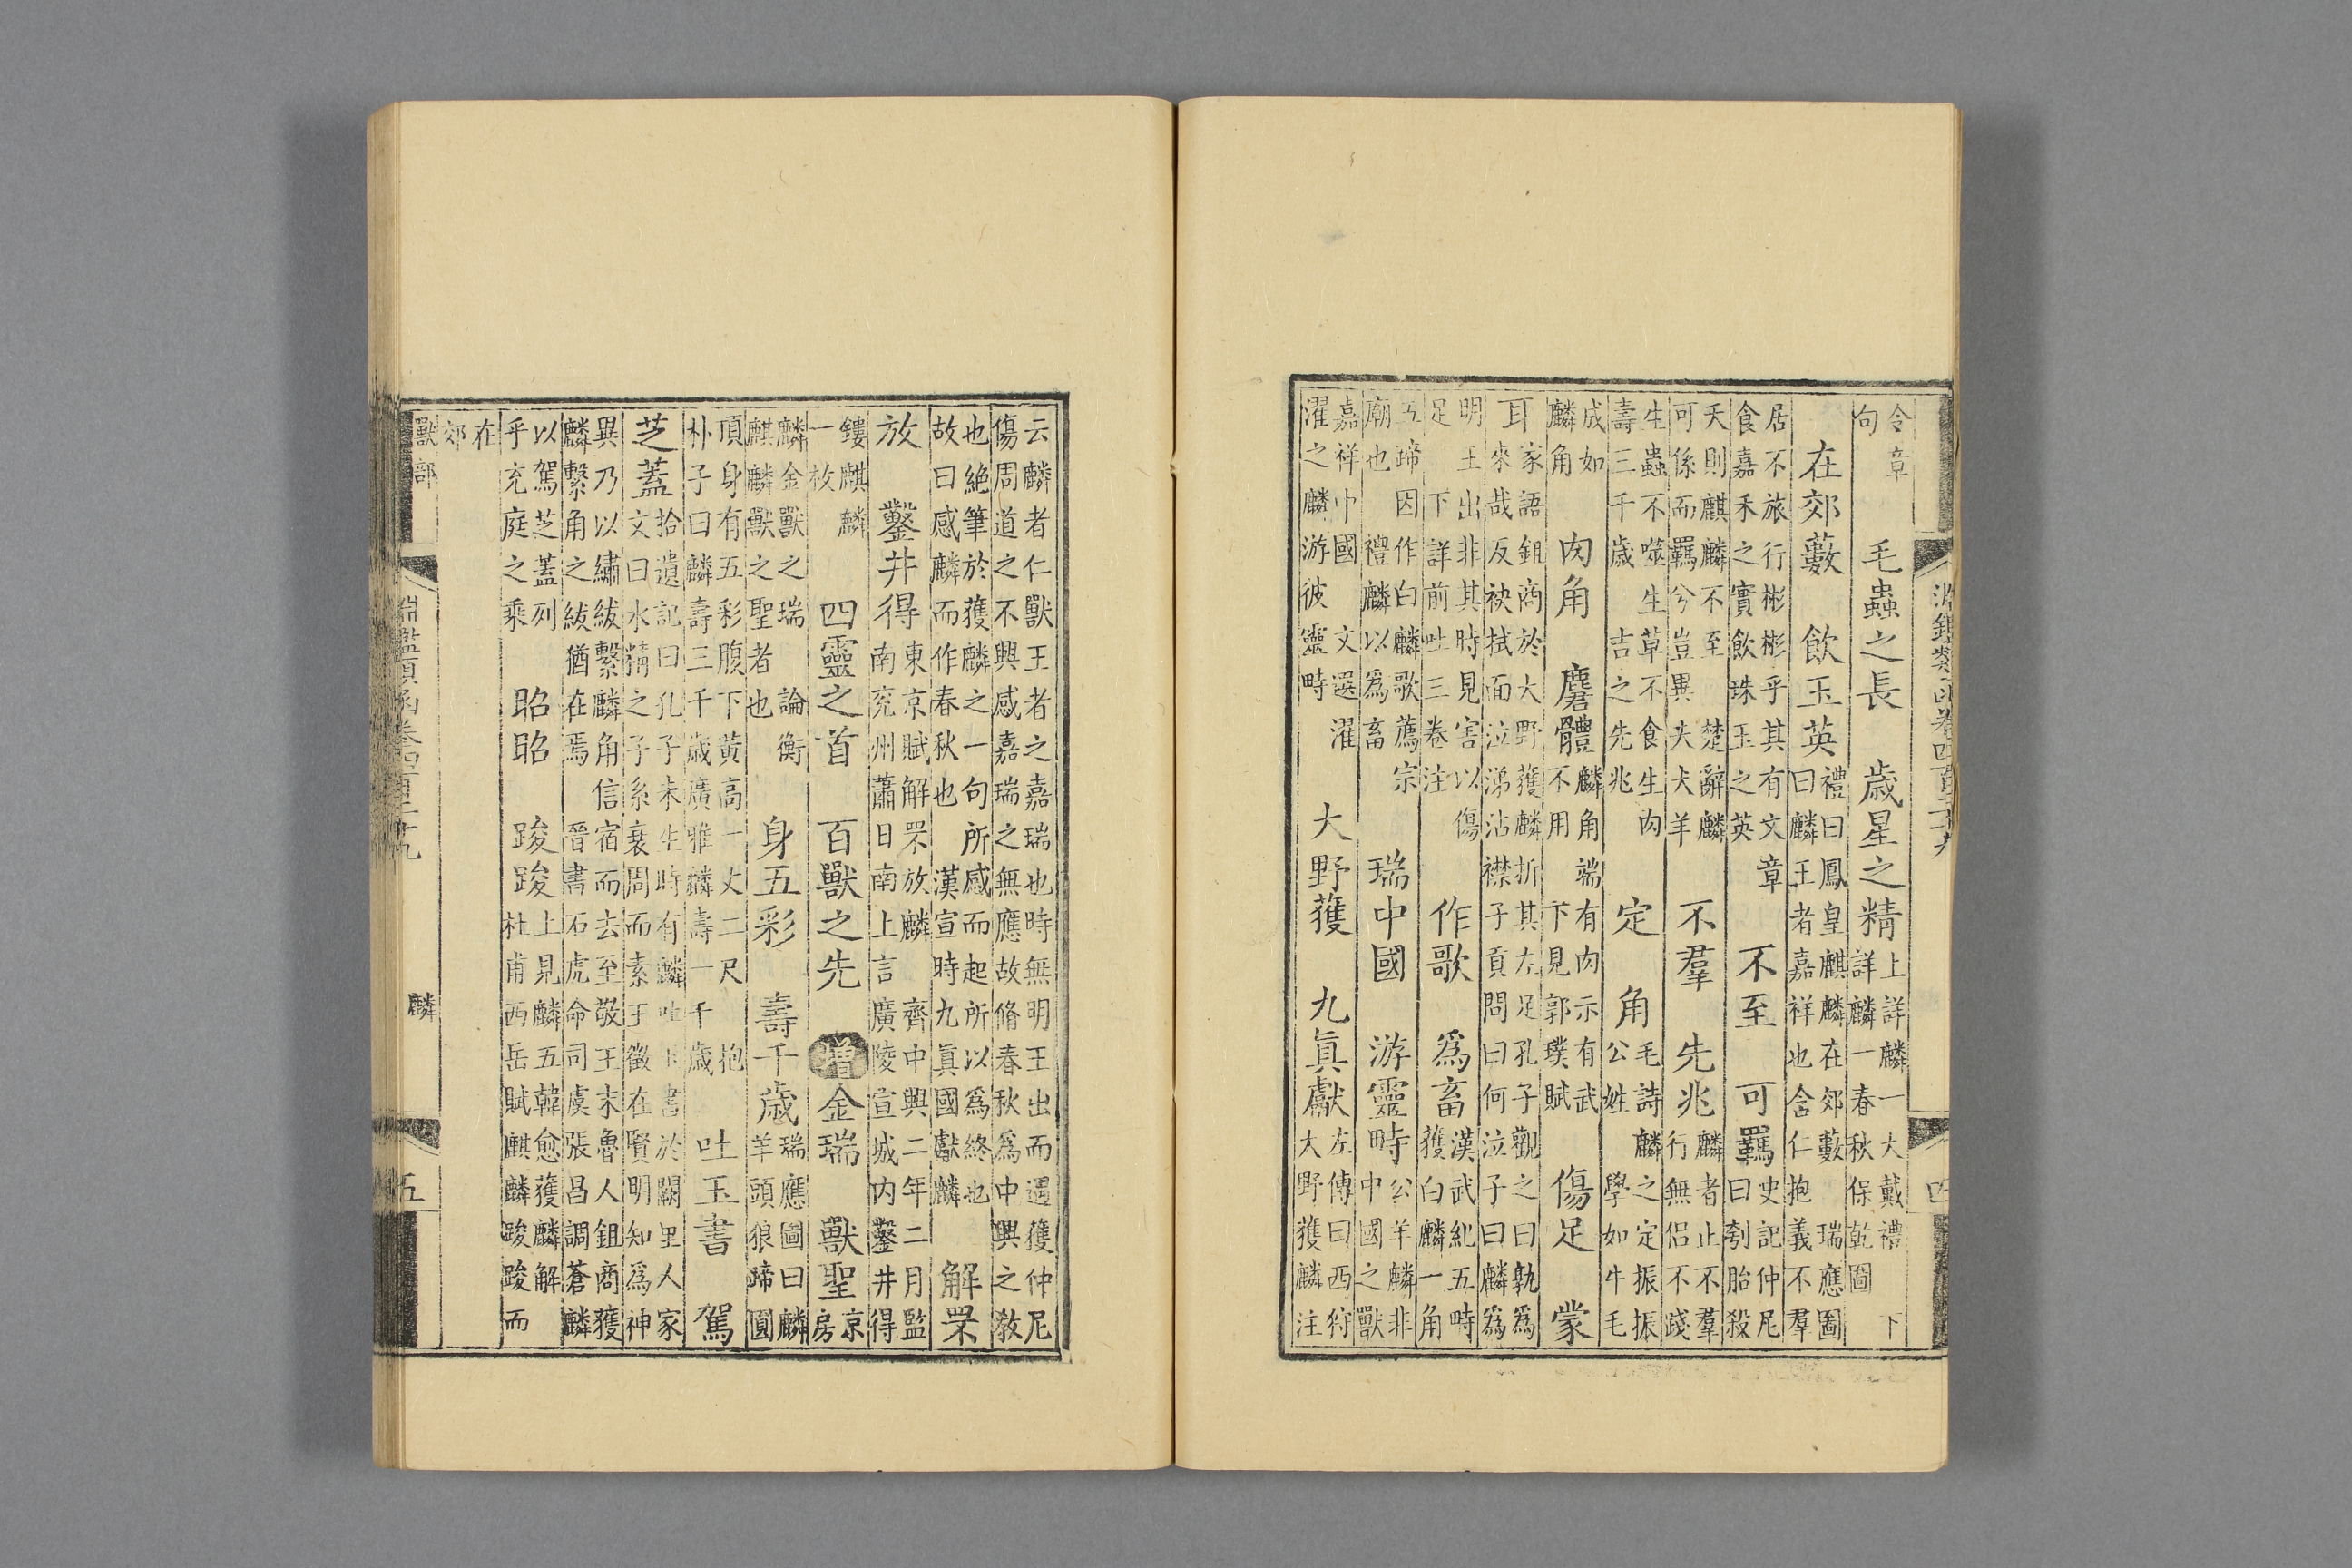 淵鑑類函卷四百二十九 四
令章句 毛蟲之長 歲星之精 上詳麟一 大戴禮 下詳麟一 春秋保乾圖
在郊藪 飲玉英 禮曰鳳皇麒麟在郊藪 瑞應圖曰麟王者嘉祥也含仁抱義不羣
居不旅行彬彬乎其有文章食嘉禾之實飲珠玉之英 不至 可羈 史記仲尼曰刳胎殺
夭則麒麟不至 楚辭麟可係而羈兮豈異夫犬羊 不羣 先兆 麟者止不羣行無侶不踐
生蟲不噬生草不食生肉壽三千歲 吉之先兆 定 角 毛詩 麟之定振振公姓 學如牛毛
成如麟角 肉角 麕體 麟角端有肉示有武不用 下見郭璞賦 傷足 蒙
耳 家語鉏商於大野獲麟折其左足孔子觀之曰孰爲來哉反袂拭面泣涕沾襟子貢問曰何泣子曰麟爲
明王出非其時見害以傷足 下詳前吐三卷注 作歌 爲畜 漢武紀五畤獲白麟一角
五蹄因作白麟歌薦宗廟也 禮麟以爲畜 瑞中國 游靈畤 公羊麟非中國之獸
嘉祥中國 文選濯濯之麟游彼靈畤 大野獲 九眞獻 左傳曰西狩大野獲麟注
云麟者仁獸王者之嘉瑞也時無明王出而遇獲仲尼傷周道之不興感嘉瑞之無應故脩春秋爲中興之敎
也絕筆於獲麟之一句所感而起所以爲終也故曰感麟而作春秋也 漢宣時九眞國獻麟 解罘
放 鑿井得 東京賦解罘放麟 齊中興二年二月監南兖州蕭日南上言廣陵宣城内鑿井得
鏤麒麟一枚 四靈之首 百獸之先 增 金瑞 獸聖 京房
麟金獸之瑞 論衡麒麟獸之聖者也 身五彩 壽千歲 瑞應圖曰麟羊頭狼蹄圓
頂身有五彩腹下黃高一丈二尺 抱朴子曰麟壽三千歲廣雅麟壽一千歲 吐玉書 駕
芝蓋 拾遺記曰孔子未生時有麟吐玉書於闕里人家文曰水精之子系衰周而素王徵在賢明知爲神
異乃以繡紱繫麟角信宿而去至敬王末魯人鉏商獲麟繫角之紱猶在焉 晉書石虎命司虞張昌調蒼麟
以駕芝蓋列乎充庭之乘 昭昭 踆踆 上見麟五韓愈獲麟解杜甫西岳賦麒麟踆踆而
在郊
獸部 淵鑑類函卷四百二十九 麟 五